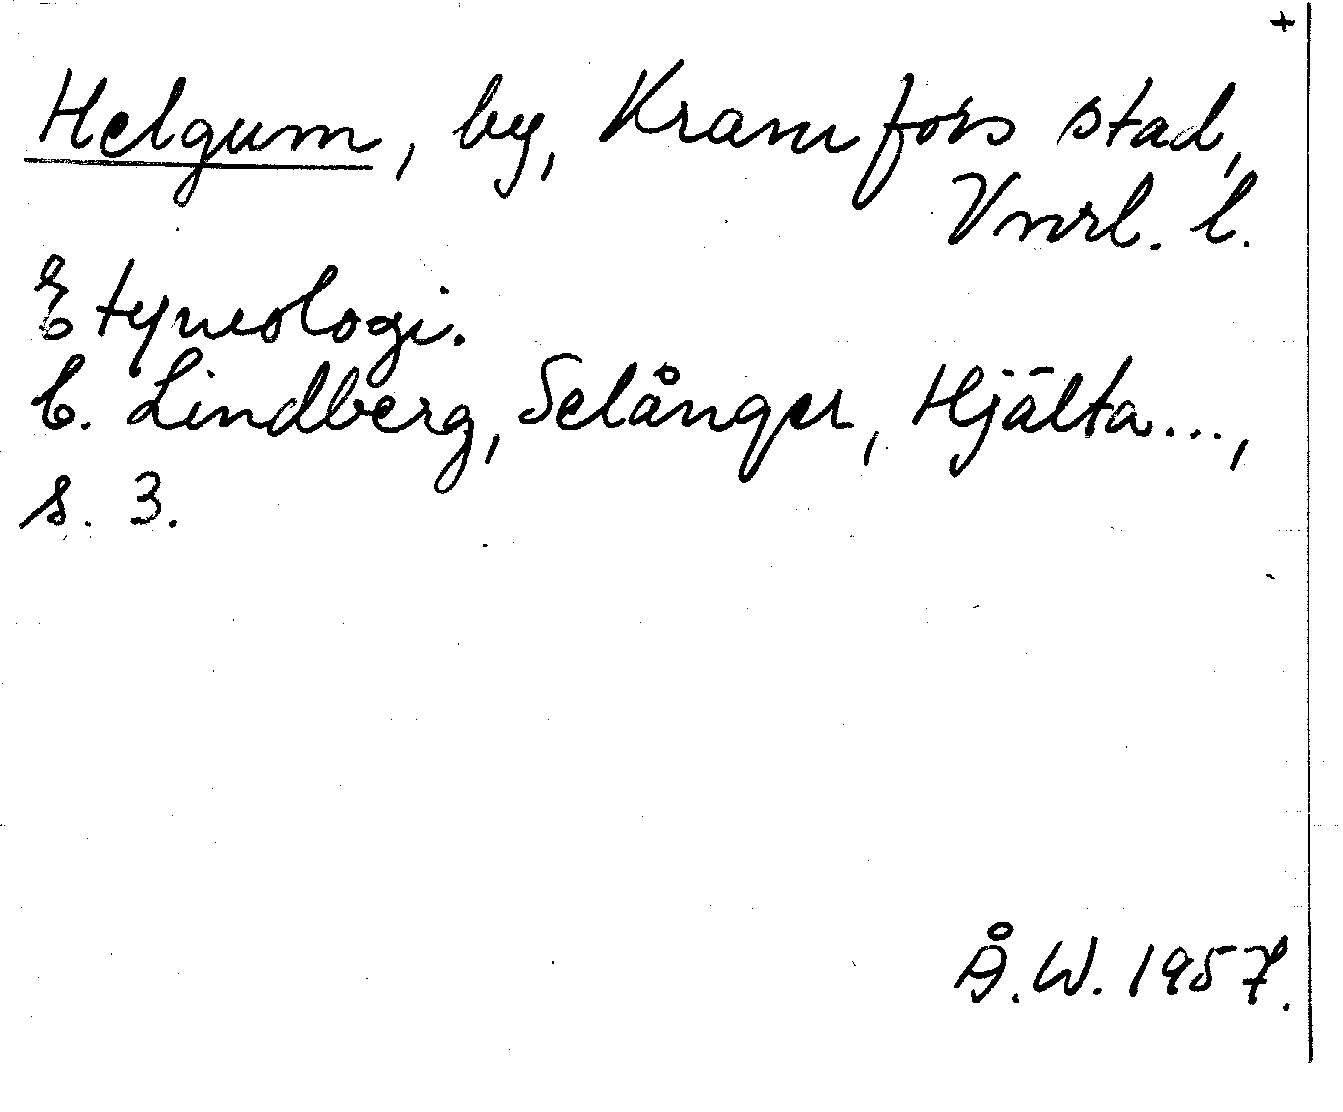 +
Helgum, by, Kramfors stad,
Vnrl. l.
Etymologi.
C. Lindberg, Selånger, Hjälta...,
s. 3.
Å.W. 1957.